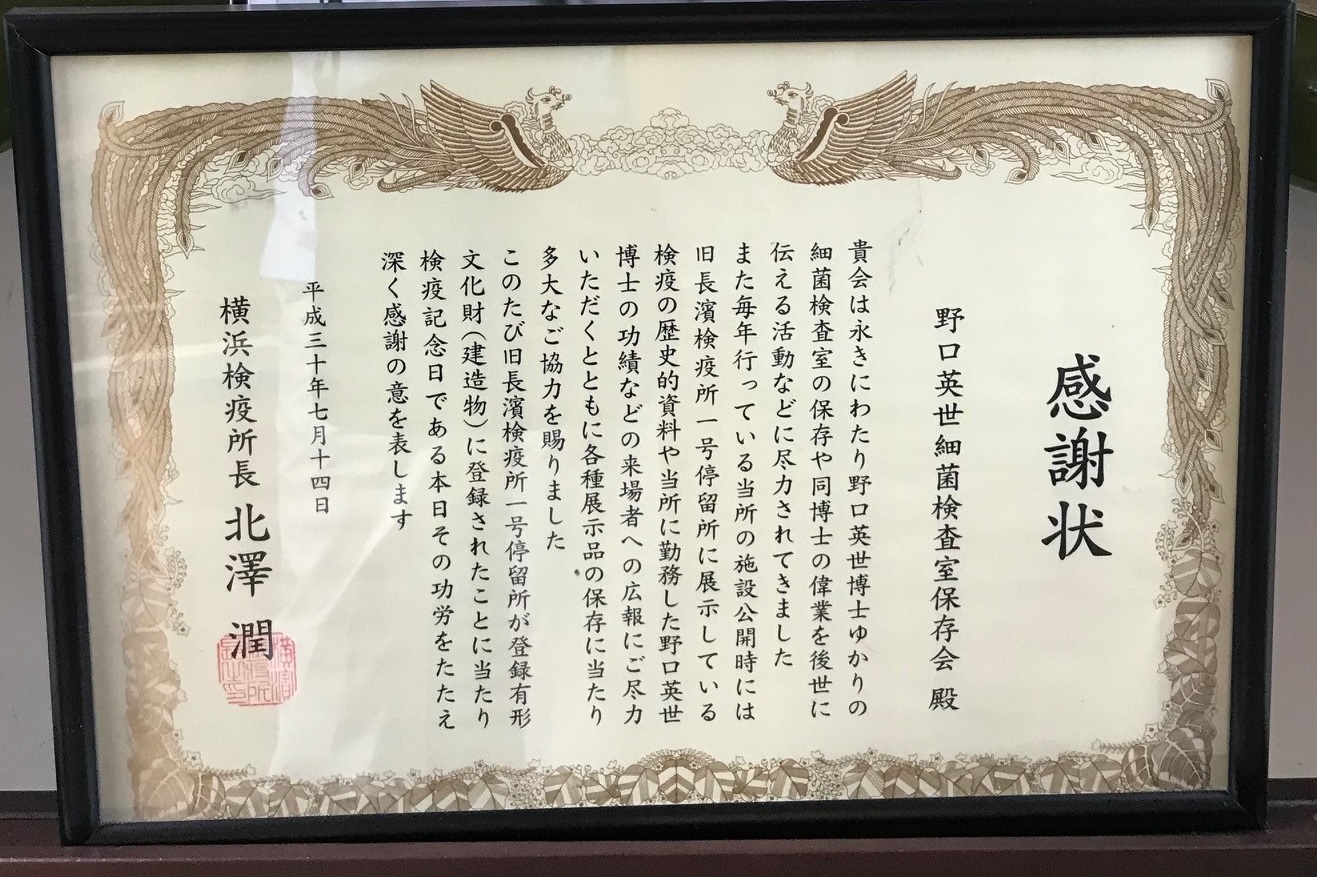 感謝状
野口英世細菌検査室保存会 殿
貴会は永きにわたり野口英世博士ゆかりの
細菌検査室の保存や同博士の偉業を後世に
伝える活動などに尽力されてきました
また毎年行っている当所の施設公開時には
旧長濱検疫所一号停留所に展示している
検疫の歴史的資料や当所に勤務した野口英世
博士の功績などの来場者への広報にご尽力
いただくとともに各種展示品の保存に当たり
多大なご協力を賜りました
このたび旧長濱検疫所一号停留所が登録有形
文化財(建造物)に登録されたことに当たり
検疫記念日である本日その功労をたたえ
深く感謝の意を表します
平成三十年七月十四日
横浜検疫所長 北澤 潤